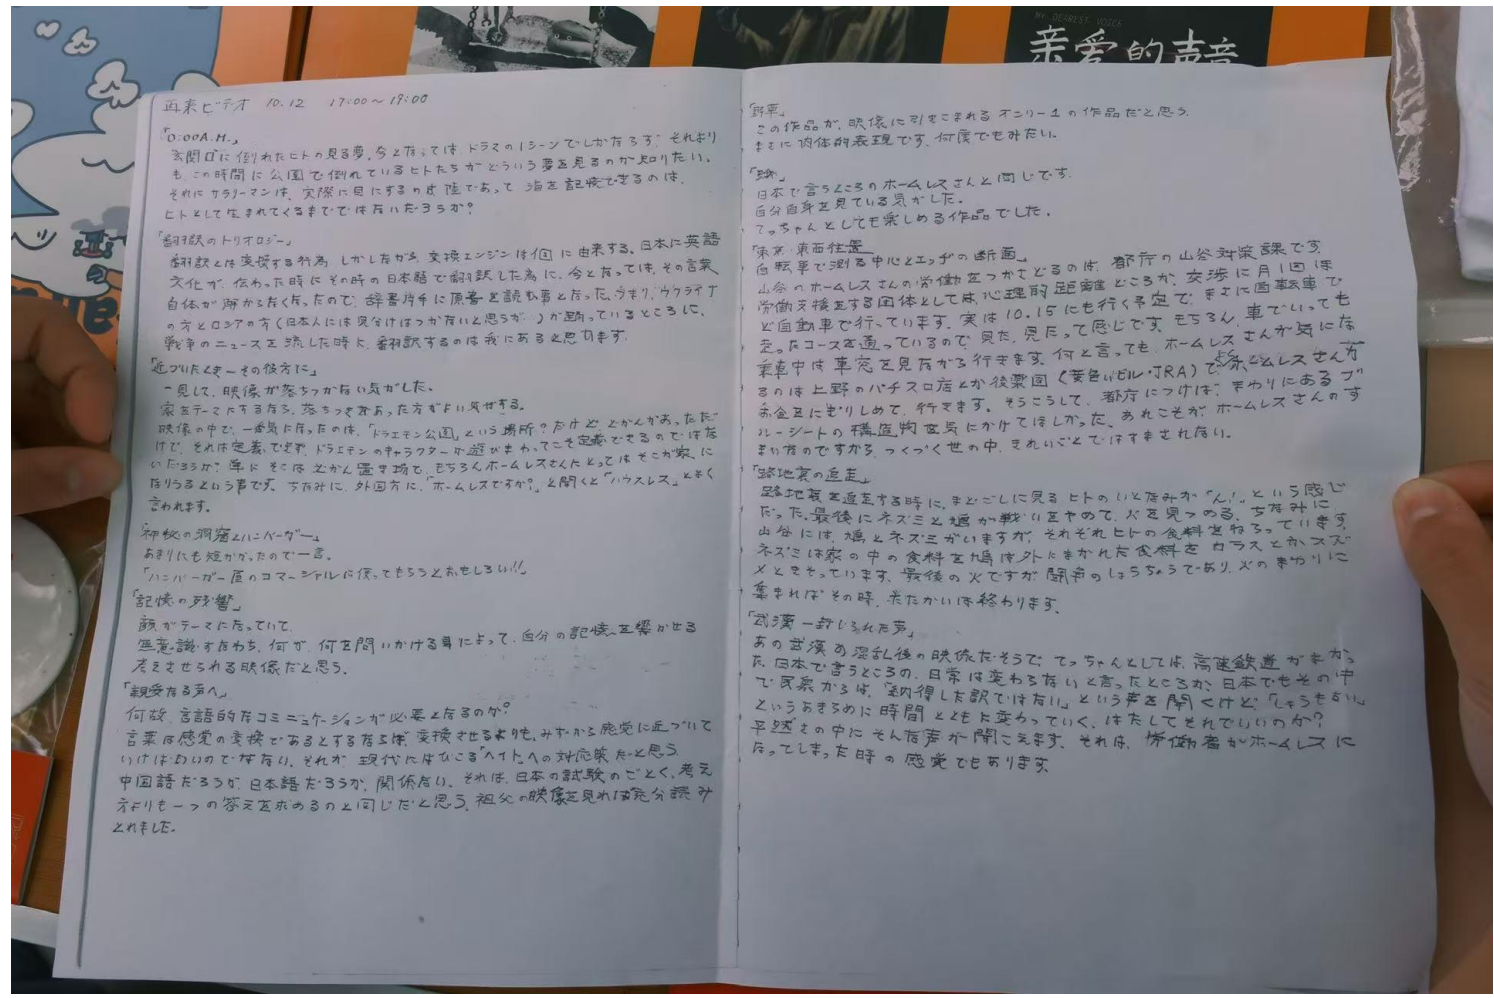 MY DEAREST VOICE
亲爱的声音
再来ビデオ 10.12 17:00〜19:00
「0:00A.M.」
玄関口に倒れたヒトの見る夢。今となっては ドラマの1シーンでしかなろす。それより
も、この時間に公園で倒れているヒトたちがどういう夢を見るのか知りたい。
それにサラリーマンは、実際に目にするのは陸であって 海を記憶できるのは、
ヒトとして生まれてくるまでではないだろうか?
「翻訳のトリオロジー」
翻訳とは変換する行為 しかしながら、変換エンジンは個に由来する。日本に英語
文化が、伝わった時にその時の日本語で翻訳した為に、今となっては、その言葉
自体が解からなくなったので、辞書片手に原書を読む事となった。つまり、ウクライナ
の方とロシアの方(日本人には見分けはつかないと思うが…)が踊っているところに、
戦争のニュースを流した時に、翻訳するのは我にあると思います。
「近づいたとき―その彼方に」
一見して、映像が落ちつかない気がした。
家をテーマにするなら、落ちつきがあった方がよい気がする。
映像の中で、一番気になったのは、「ドラエモン公園」という場所?だけど、どかんがあっただ
けで、それは定義できず、ドラエモンのキャラクターが遊びまわってこそ定義できるのではな
いだろうか?単にそこは土かん置き場で、もちろんホームレスさんにとってはそこが家に
なりうるという事です。ちなみに、外国方に、「ホームレスですか?」と聞くと「ハウスレス」とよく
言われます。
「神秘の洞窟とハンバーガー」
あまりにも短かかったので一言。
「ハンバーガー屋のコマーシャルに使ってもらうとおもしろい!!」
「記憶の残響」
顔がテーマになっていて、
無意識すなわち、何が、何を問いかける事によって、自分の記憶を響かせる
考えさせられる映像だと思う。
「親愛なる声へ」
何故、言語的なコミニュケーションが必要となるのか?
言葉は感覚の変換であるとするならば、変換させるよりも、みずから感覚に近づいて
いけばよいのでなない。それが、現代にはびこる「ヘイト」への対応策だと思う。
中国語だろうが、日本語だろうが、関係ない。それは、日本の試験のごとく、考え
方よりも一つの答えを求めるのと同じだと思う。祖父の映像を見れば充分読み
とれました。
「野草」
この作品が、映像に引きこまれるオンリー1の作品だと思う。
まさに肉体的表現です。何度でもみたい。
日本で言うところのホームレスさんと同じです。
自分自身を見ている気がした。
てっちゃんとしても楽しめる作品でした。
「東京・東西往置
自転車で測る中心とエッヂの断面」
山谷のホームレスさんの労働をつかさどるのは、都庁の山谷対策課です。
労働支援をする団体としては、心理的距離どころか、交渉に月1回ほ
ど自動車で行っています。実は10.15にも行く予定で、まさに自転車で
走ったコースを通っているので、見た、見たって感じです。もちろん、車でいっても
乗車中は車窓を見ながら行きます。何と言っても、ホームレスさんが気にな
るのは上野のパチスロ店とか後楽園(黄色いビル・JRA)で、ホームレスさんが
お金をにぎりしめて、行きます。そうこうして、都庁につけば、まわりにあるブ
ルーシートの構造物を気にかけてほしかった。あれこそが ホームレスさんのす
まいなのですから、つくづく世の中、きれいごとではすまされない。
「路地裏の追走」
路地裏を追走する時に、まどごしに見るヒトのいとなみが「ん!」という感じ
だった。最後にネズミと鳩が戦いをやめて、火を見つめる。ちなみに
山谷には、鳩とネズミがいますが、それぞれヒトの食料をねらっています。
ネズミは家の中の食料を鳩は外にまかれた食料を カラスとかスズ
メときそっています。最後の火ですが、闘争のしょうちょうであり、火のまわりに
集まればその時、たたかいは終わります。
「武漢―封じられた声」
あの武漢の混乱後の映像だそうで、てっちゃんとしては、高速鉄道がまかっ
た。日本で言うところの、日常は変わらないと言ったところか、日本でもその中
で民衆からは、「納得した訳ではない」という声を聞くけど、「しょうもない」
というあきらめに時間とともに変わっていく。はたしてそれでいいのか?
平然さの中にそんな声が聞こえます。それは、労働者がホームレスに
なってしまった時の感覚でもあります。